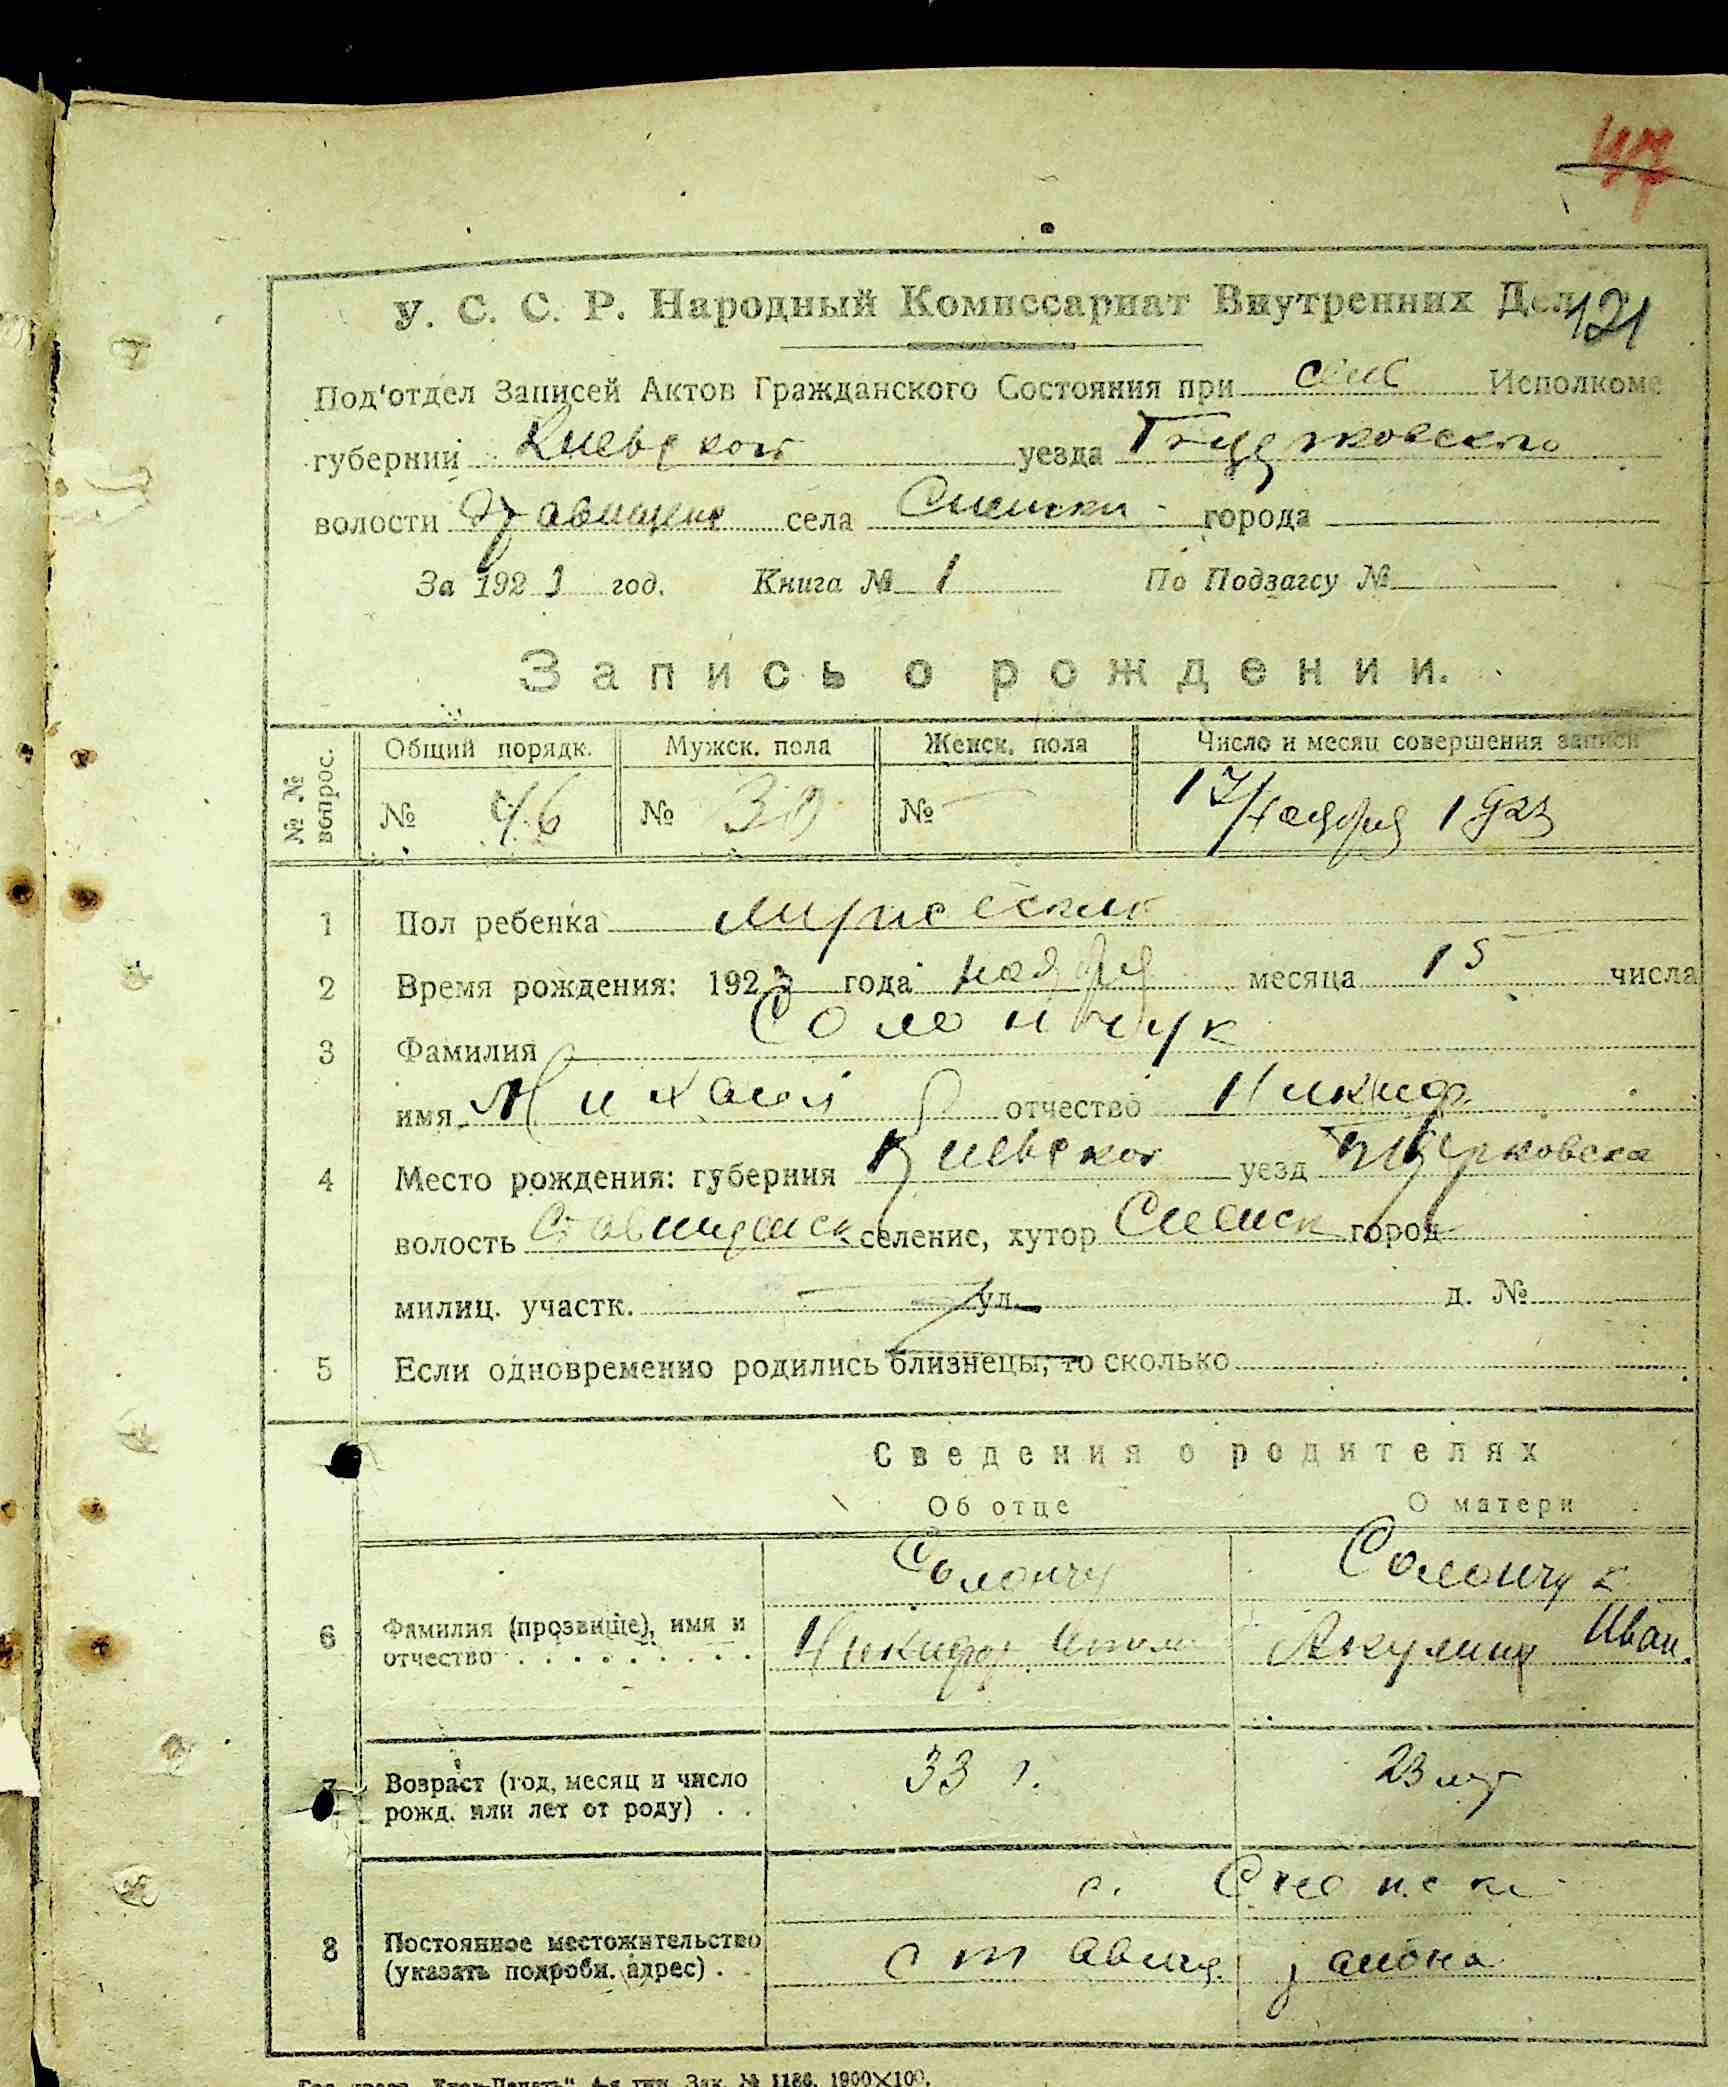 У. С. С. Р. Народный Комиссариат Внутренних Дел
121
Под'отдел Записей Актов Гражданского Состояния при Исполкоме
губернии Киевской уезда
волости села города
За 1923 год. Книга № 1 По Подзагсу №
Запись о рождении.
№ № вопрос. Общий порядк. Мужск. пола Женск. пола Число и месяц совершения записи
№ 46 № 39 № 17 ноября 1923
1 Пол ребенка мужеский
2 Время рождения: 1923 года ноября месяца 15 числа
3 Фамилия Солончук
имя Михаил отчество Никиф.
4 Место рождения: губерния Киевской уезд
волость Ставищанск селение, хутор город
милиц. участк. ул. д. №
5 Если одновременно родились близнецы, то сколько
Сведения о родителях
Об отце О матери
Солончу Солончук
6 Фамилия (прозвище), имя и
отчество . . . . . . . . . Никифор Акулина Иван.
7 Возраст (год, месяц и число
рожд. или лет от роду) . . 33 г. 23 лет
с.
8 Постоянное местожительство
(указать подробн. адрес) . . Ставищ. района
Зак. № 1186. 1900×100.